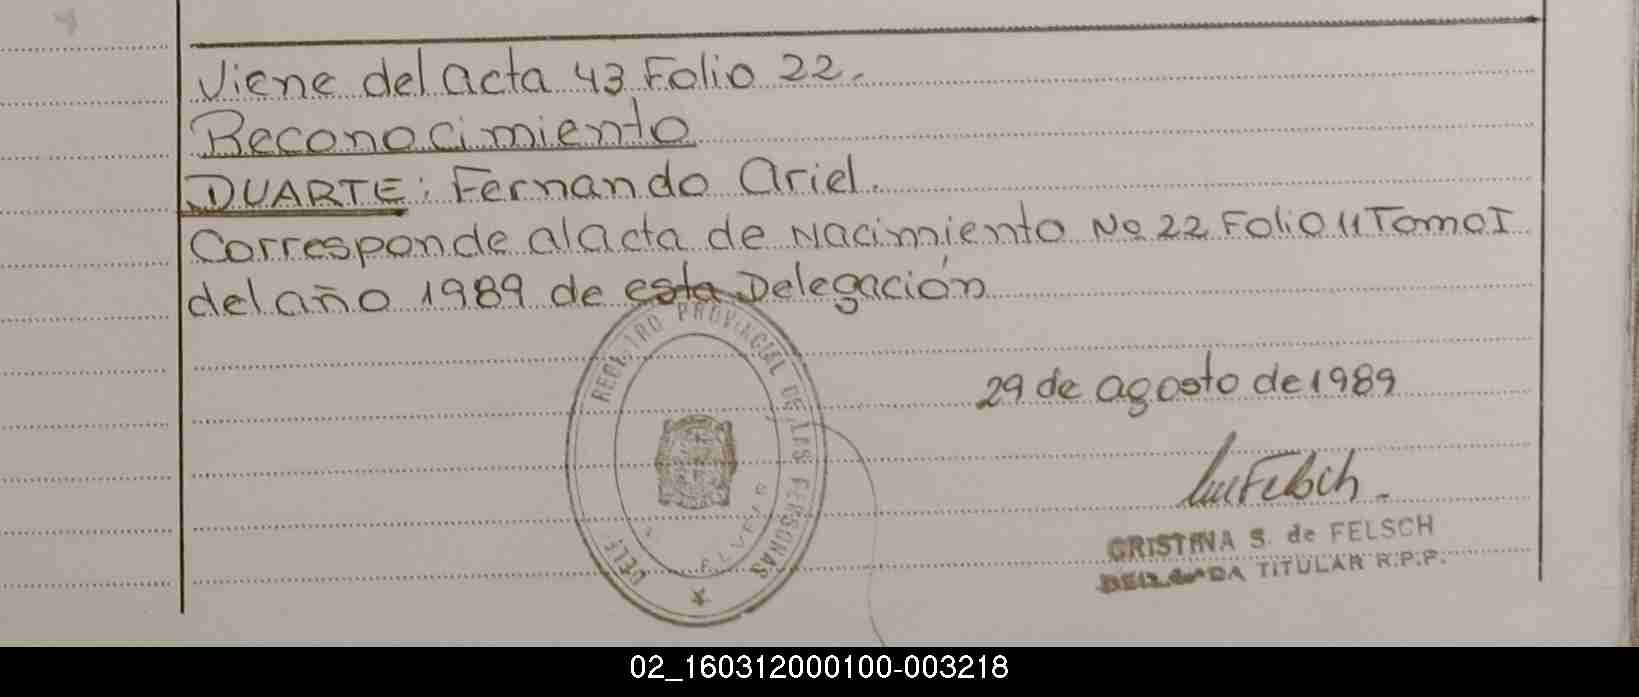 Viene del acta 43 Folio 22.
Reconocimiento
DUARTE: Fernando Ariel.
Corresponde al acta de Nacimiento No 22 Folio 11 Tomo I
del año 1989 de esta Delegación
REGISTRO PROVINCIAL DE LAS PERSONAS
29 de agosto de 1989
Felsch.
CRISTINA S. de FELSCH
DELEGADA TITULAR R.P.P.
02_160312000100-003218